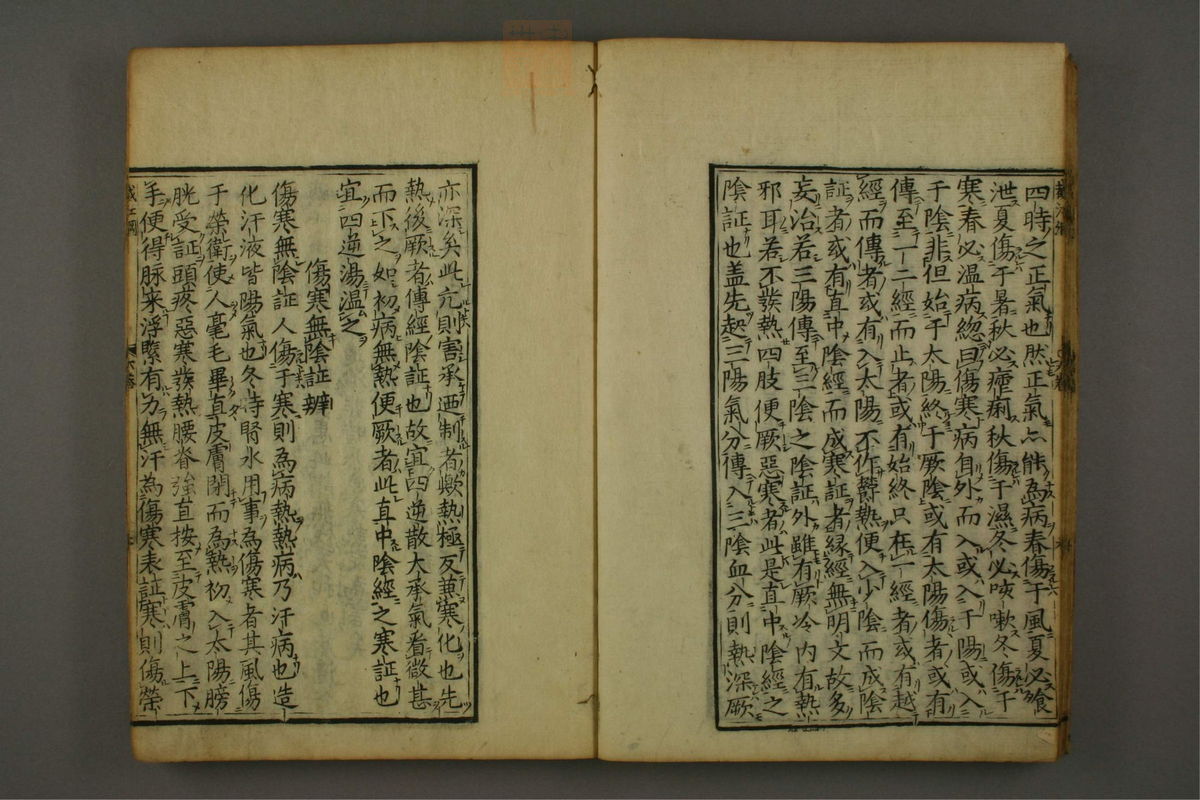 四時之正氣也然正氣亦能為病春傷于風夏必飱
泄夏傷于暑秋必瘧痢秋傷于濕冬必咳嗽冬傷于
寒春必温病緫曰傷寒病自外而入或入于陽或入
于陰非但始于太陽終于厥陰或有太陽傷者或有
傳至一二經而止者或有始終只在一經者或有越
經而傳者或有入太陽不作欝熱便入少陰而成陰
証者或有直中陰經而成寒証者縁經無明文故多
妄治若三陽傳至三陰之陰証外雖有厥冷内有熱
邪耳若不發熱四肢便厥惡寒者此是直中陰經之
陰証也盖先起三陽氣分傳入三陰血分則熱深厥
亦深矣此亢則害承廼制者歟熱極反兼寒化也先
熱後厥者傳經陰証也故宜四逆散大承氣看微甚
而下之如初病無熱便厥者此直中陰經之寒証也
宜四逆湯温之
傷寒無陰証辨
傷寒無陰証人傷于寒則為病熱熱病乃汗病也造
化汗液皆陽氣也冬時腎水用事為傷寒者其風傷
于榮衛使人毫毛畢直皮膚閉而為熱初入太陽膀
胱受証頭疼惡寒發熱腰脊強直按至皮膚之上下
手便得脉来浮緊有力無汗為傷寒表証寒則傷榮